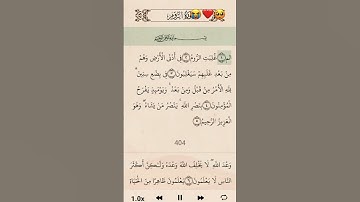 سورة الروم
الٓمٓ ۝١ غُلِبَتِ ٱلرُّومُ ۝٢ فِىٓ أَدْنَى ٱلْأَرْضِ وَهُم
مِّنۢ بَعْدِ غَلَبِهِمْ سَيَغْلِبُونَ ۝٣ فِى بِضْعِ سِنِينَ ۗ
لِلَّهِ ٱلْأَمْرُ مِن قَبْلُ وَمِنۢ بَعْدُ ۚ وَيَوْمَئِذٍ يَفْرَحُ
ٱلْمُؤْمِنُونَ ۝٤ بِنَصْرِ ٱللَّهِ ۚ يَنصُرُ مَن يَشَآءُ ۖ وَهُوَ
ٱلْعَزِيزُ ٱلرَّحِيمُ ۝٥
404
وَعْدَ ٱللَّهِ ۖ لَا يُخْلِفُ ٱللَّهُ وَعْدَهُۥ وَلَٰكِنَّ أَكْثَرَ
ٱلنَّاسِ لَا يَعْلَمُونَ ۝٦ يَعْلَمُونَ ظَٰهِرًا مِّنَ ٱلْحَيَوٰةِ
1.0x